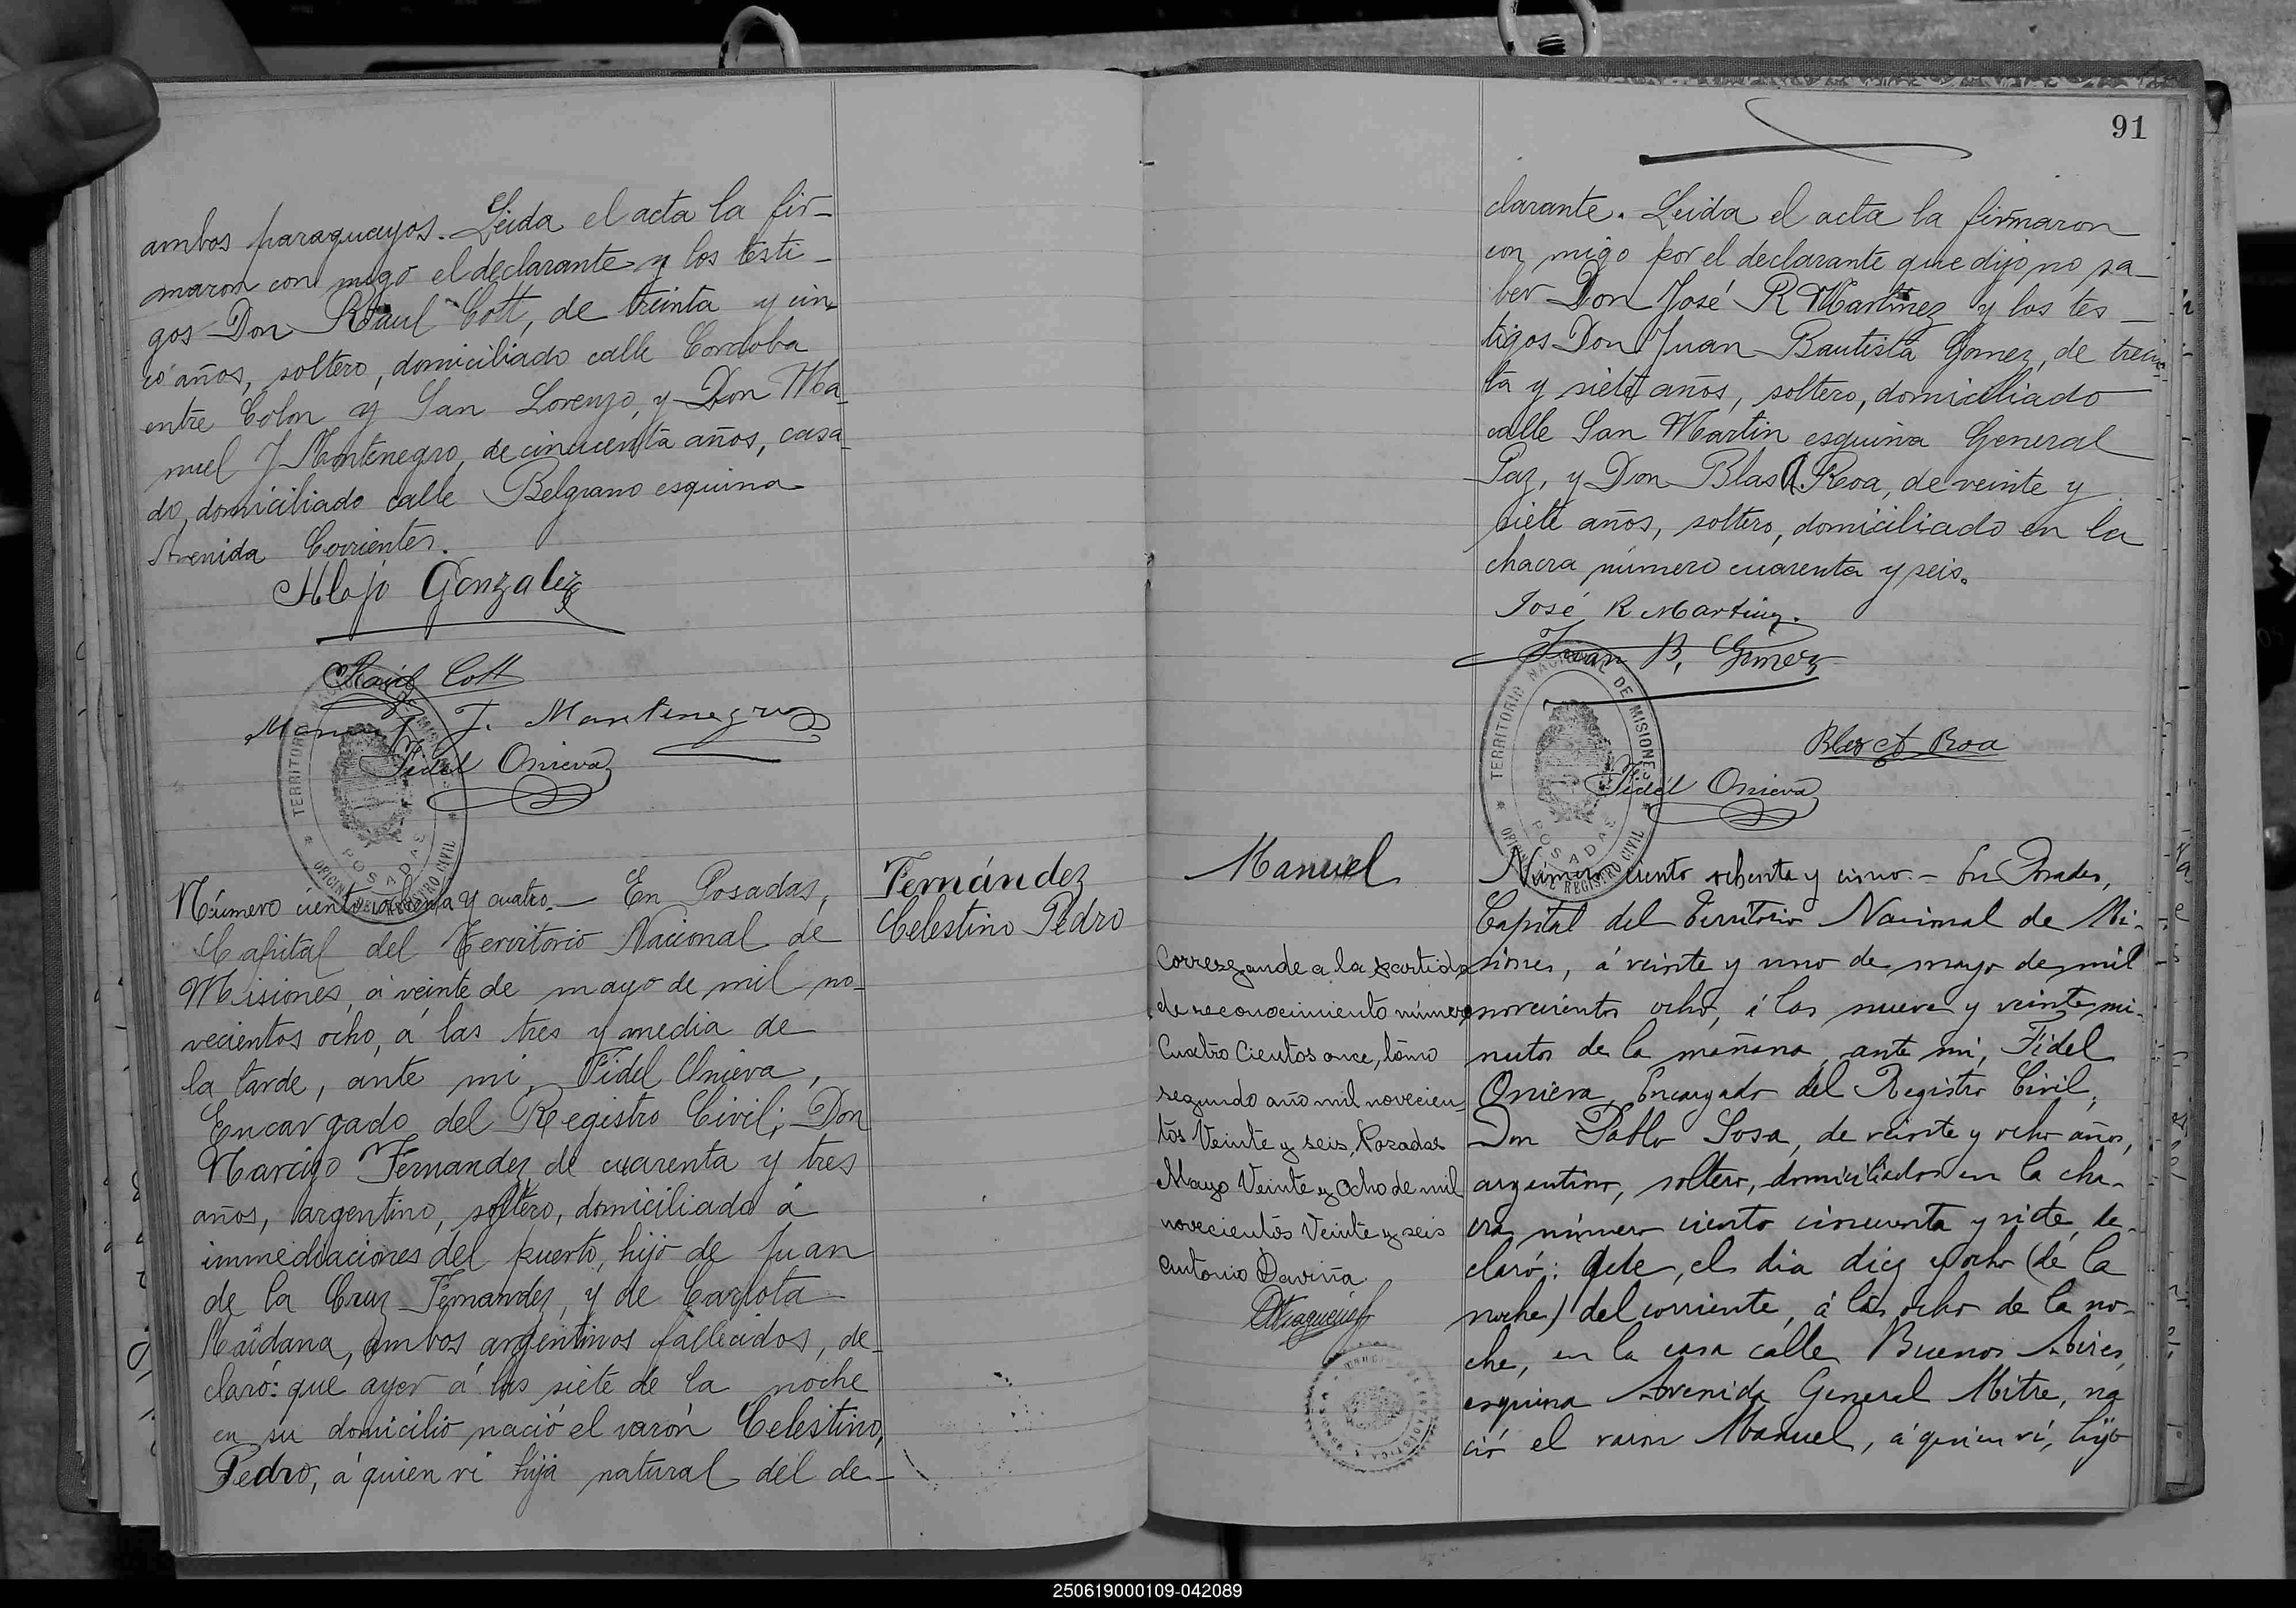 ambos paraguayos. Leida el acta la fir-
maron con migo el declarante y los testi-
gos Don Raul Cott, de treinta y cin-
co años, soltero, domiciliado calle Cordoba
entre Colon y San Lorenzo, y Don Ma-
nuel J Montenegro, de cincuenta años, casa-
do, domiciliado calle Belgrano esquina
Avenida Corrientes.
Alejo Gonzalez
Raúl Cott
Manuel J. Montenegro
Fidel Onieva
TERRITORIO NACIONAL DE MISIONES
POSADAS
OFICINA DEL REGISTRO CIVIL
Número ciento ochenta y cuatro.— En Posadas,
Capital del Territorio Nacional de
Misiones, á veinte de mayo de mil no-
vecientos ocho, á las tres y media de
la tarde, ante mi, Fidel Onieva,
Encargado del Registro Civil; Don
Narcizo Fernandez de cuarenta y tres
años, argentino, soltero, domiciliado á
immediaciones del puerto, hijo de Juan
de la Cruz Fernandez, y de Carlota
Maidana, ambos argentinos fallecidos, de-
claró: que ayer á las siete de la noche
en su domicilio nació el varón Celestino,
Pedro, á quien vi hijo natural del de-
Fernández
Celestino Pedro
91
clarante. Leida el acta la firmaron
con migo por el declarante que dijo no sa-
ber Don José R Martinez y los tes-
tigos Don Juan Bautista Gomez, de trein-
ta y siete años, soltero, domiciliado
calle San Martin esquina General
Paz, y Don Blas A. Roa, de veinte y
siete años, soltero, domiciliado en la
chacra número cuarenta y seis.
José R Martinez.
Juan B. Gómez
Blas A Roa
Fidel Onieva
TERRITORIO NACIONAL DE MISIONES
POSADAS
OFICINA DEL REGISTRO CIVIL
Manuel
Corresponde a la partida
de reconocimiento número
Cuatro Cientos once, tomo
segundo año mil novecien-
tos Veinte y seis, Posadas
Mayo Veinte y Ocho de mil
novecientos Veinte y seis
Antonio Daviña
Número ciento ochenta y cinco.— En Posadas,
Capital del Territorio Nacional de Mi-
siones, á veinte y uno de mayo de mil
novecientos ocho, á las nueve y veinte mi-
nutos de la mañana, ante mi, Fidel
Onieva, Encargado del Registro Civil,
Don Pablo Sosa, de veinte y ocho años,
argentino, soltero, domiciliado en la cha-
cra número ciento cincuenta y siete, de-
claró: Que, el dia diez y ocho (de la
noche) del corriente, á las ocho de la no-
che, en la casa calle Buenos Aires,
esquina Avenida General Mitre, na
ció el varon Manuel, á quien vi, hijo
250619000109-042089